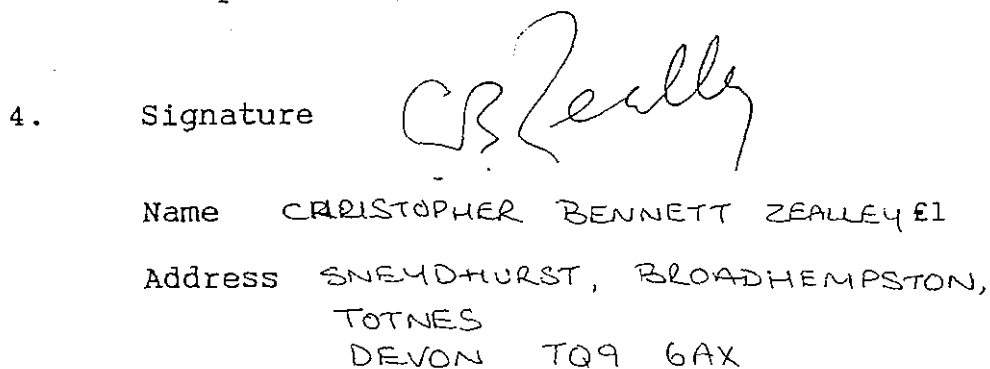 4. Signature CB Zealley
Name CHRISTOPHER BENNETT ZEALLEY £1
Address SNEYDHURST, BROADHEMPSTON,
TOTNES
DEVON TQ9 6AX